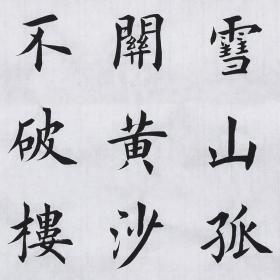 雪山孤
關黄沙
不破樓